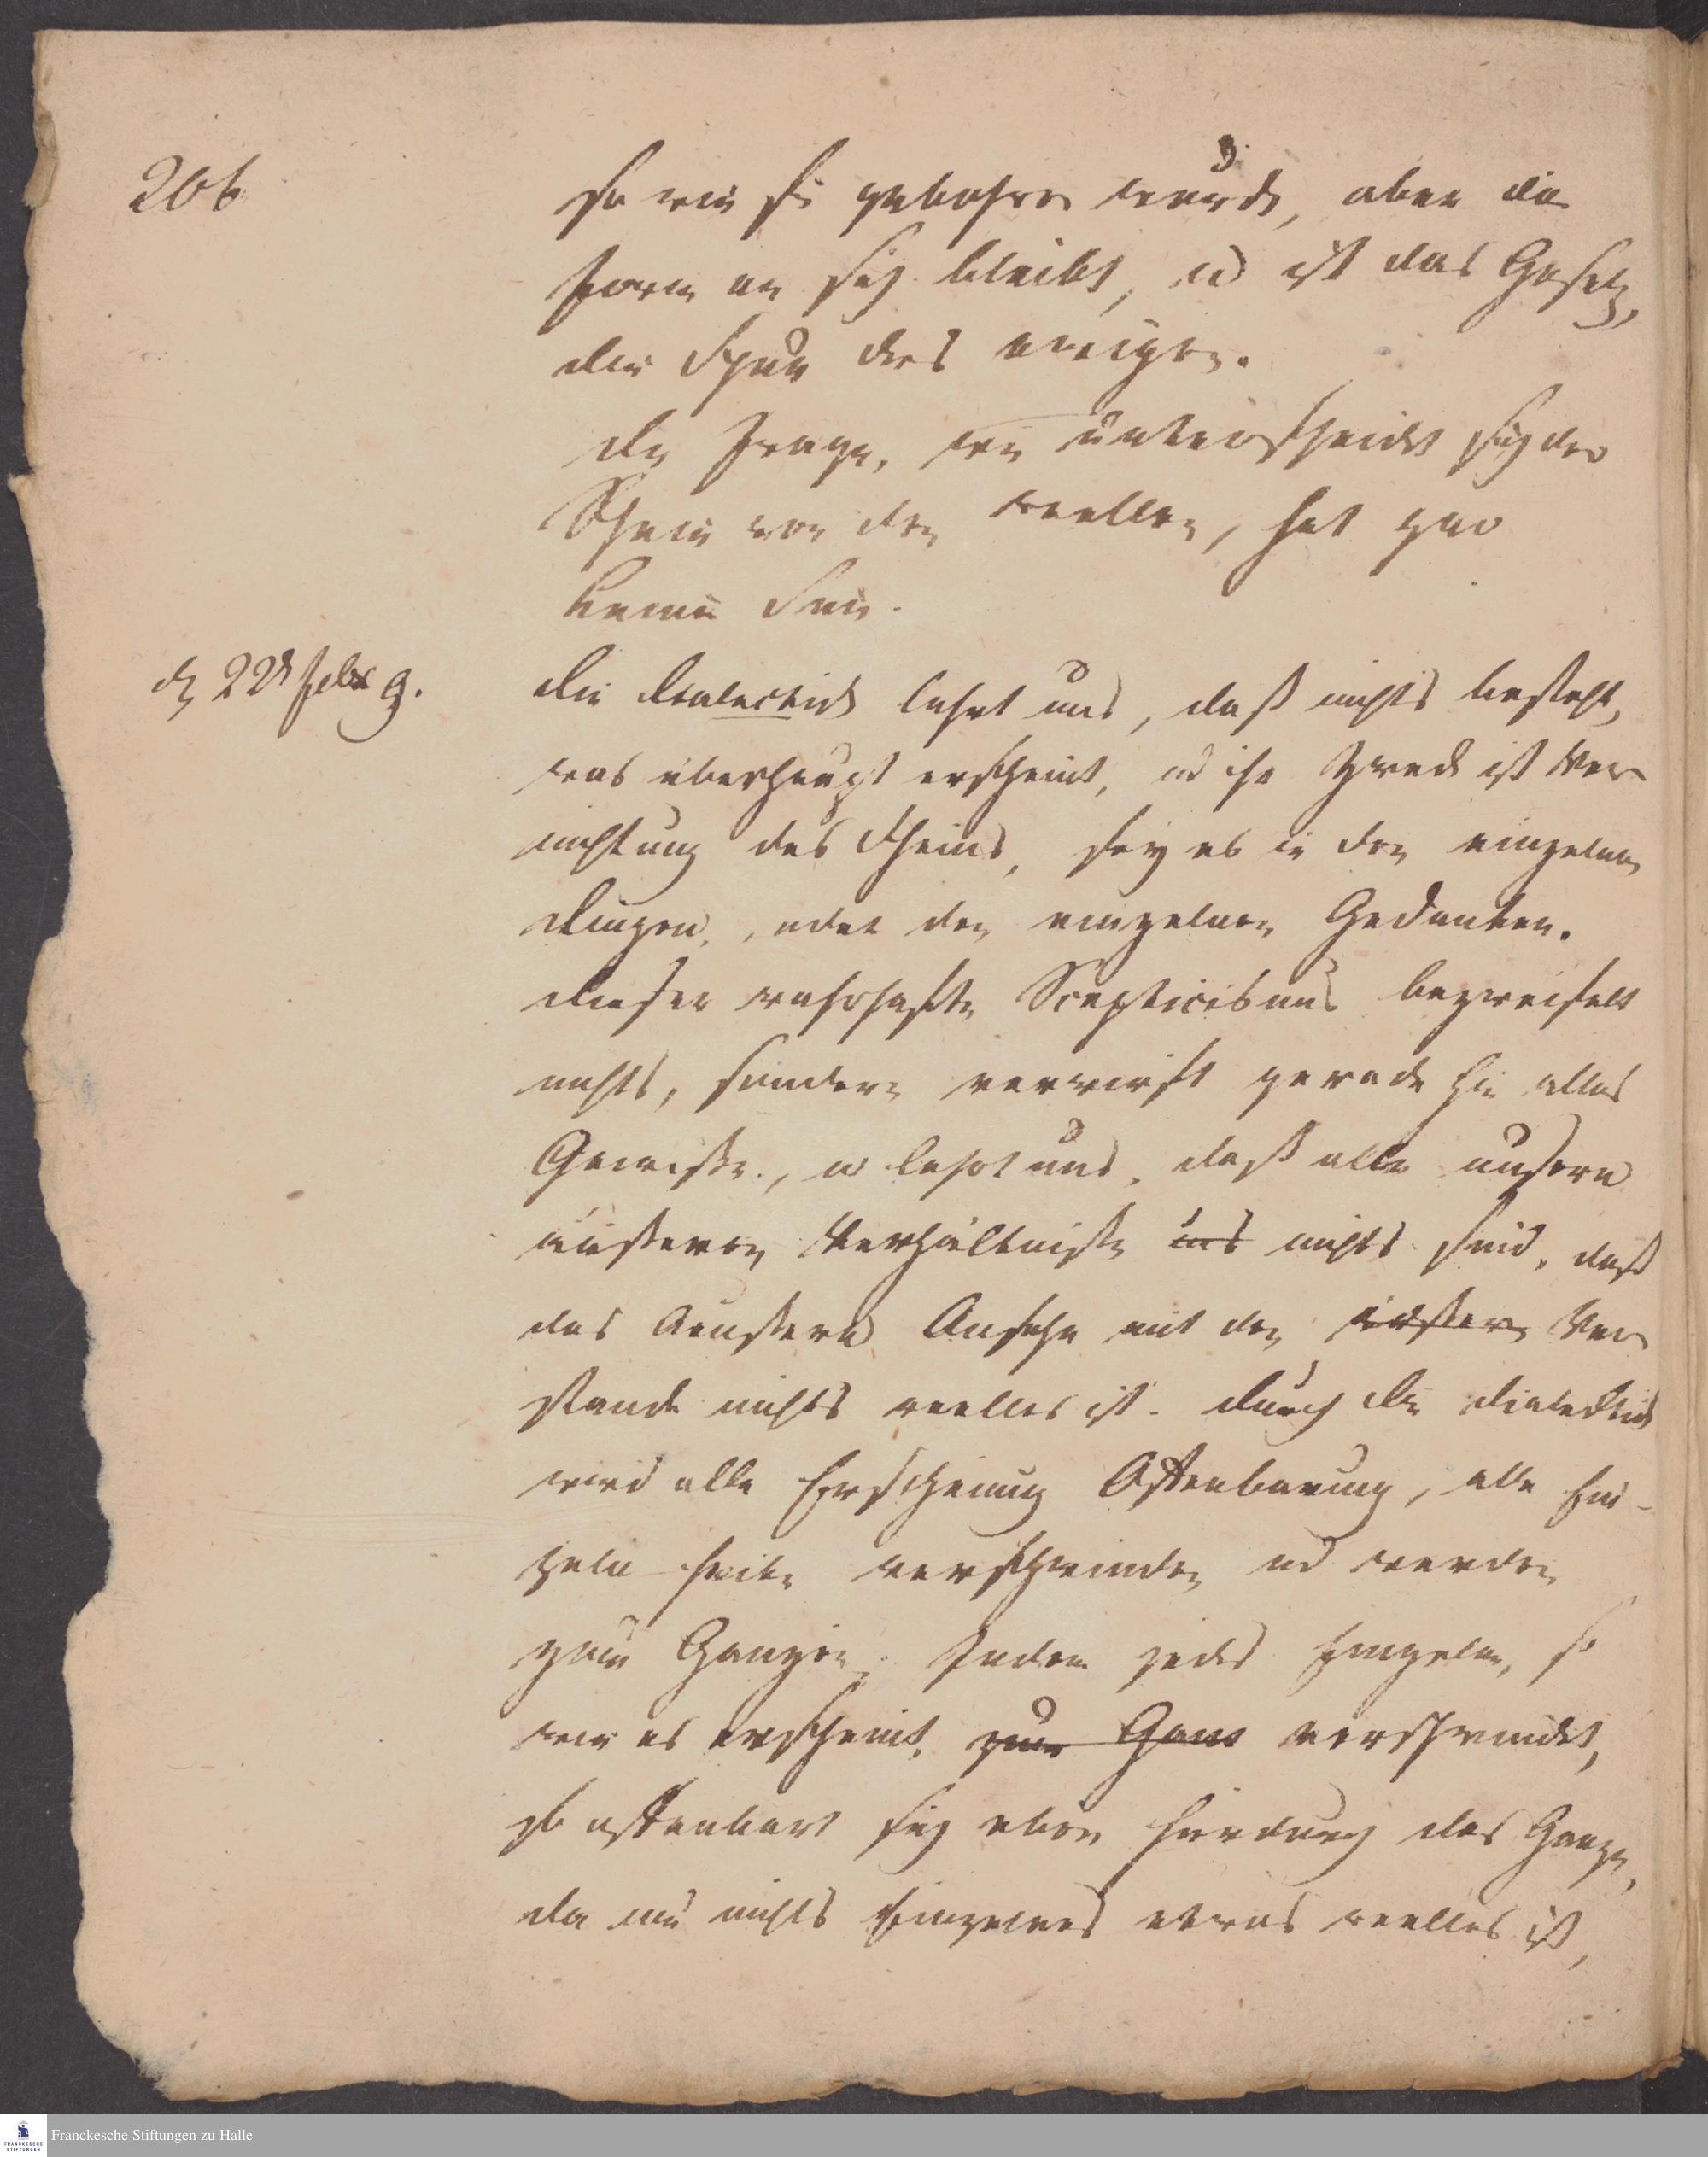 206
so wie sie gebohren wurde, aber die
Form an sich bleibt, u ist das Gesetz,
die Spur des ewigen.
Die Frage, wie unterscheidet sich der
Schein von den reellen, hat gar
keinen Sinn.
d 22t Febr 9.
Die Dialectick lehrt uns, daß nichts besteht,
was überhaupt erscheint, ud ihr Zweck ist Ver
nichtung des Scheins, sey es in den einzelnen
Dingen, oder den einzelnen Gedanken.
Dieser wahrhafte Scepticismus bezweifelt
nichts, sondern verwirft gerade hin alles
Gewisse, u lehrt uns, daß alle unsere
äusseren Verhältnisse uns nichts sind, daß
das Aeussere Ansehn mit den äussern Ver
stande nichts reelles ist. Durch die Dialectick
wird alle Erscheinung Offenbarung, alle Ein-
zelnheiten verschwinden ud werden
zum Ganzen. Indem jedes Einzelne, so
wie es erscheint, zum Ganz verschwindet,
so offenbart sich eben hierdurch das Ganze,
da nun nichts Einzelnes etwas reelles ist,
Franckesche Stiftungen zu Halle